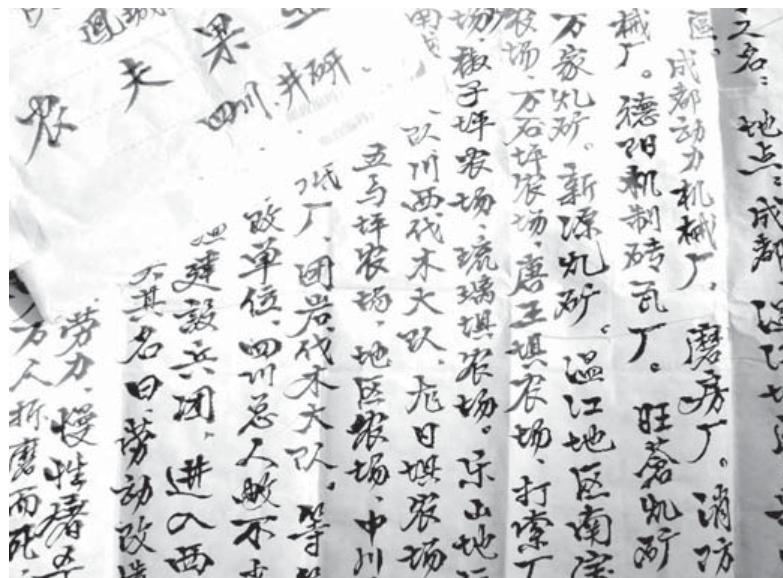 又名：地点：成都
區。成都动力机械厂。磨房厂。消防
械厂。德阳机制砖瓦厂。旺蒼矿
万家矿。新源矿。温江地区南宝
农场、万石坪农场、唐王埧农场、打厂
场、椒子坪农场、琉璃埧农场。乐山地
队川西伐木大队、龙日埧农场
五马坪农场、地区农场、中川
纸厂、团岩伐木大队。等
政单位、四川总人数不
建設兵团，进入西
其名曰、劳动改造
劳力、慢性
万人折磨而死
鳳城
农夫果
四川.井研.